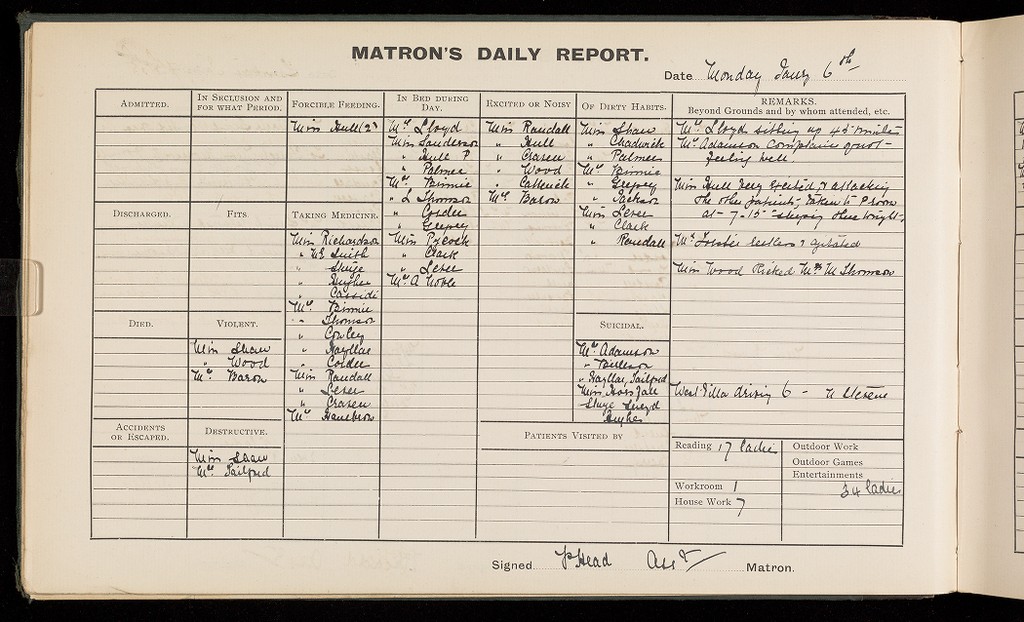 MATRON'S DAILY REPORT.
Date Monday Jany 6th
ADMITTED.
IN SECLUSION AND
FOR WHAT PERIOD.
FORCIBLE FEEDING.
Miss Hull (2)
IN BED DURING
DAY.
Mrs Lloyd
Miss Sanderson
" Hull P
" Palmer
Mrs Binnie
" L Thomson
" Corder
" Grepsey
Miss Pycock
" Clark
" Lever
Mrs A Noble
EXCITED OR NOISY
Miss Randall
" Hull
" Craven
" Wood
" Catterick
Mrs Baron
OF DIRTY HABITS.
Miss Shaw
" Chadwick
" Palmer
Mrs Binnie
" Grepsey
" Jackson
Miss Lever
" Clark
" Randall
REMARKS.
Beyond Grounds and by whom attended, etc.
Mrs Lloyd sitting up 45 minutes
Mrs Adamson complains of not
feeling well.
Miss Hull very excited, & attacking
the other patients, taken to P room
at 7-15 sleeping there tonight.
Mrs restless & agitated
Miss Wood Kicked Mrs M Thomson
West Villa driving 6 -
DISCHARGED.
FITS
TAKING MEDICINE.
Miss Richardson
" Smith
"
" Hughes
" Cassidi
Mrs Binnie
" Thomson
" Cowley
" Hayllar
" Corder
Miss Randall
" Lever
" Craven
Mrs
DIED.
VIOLENT.
Miss Shaw
" Wood
Mrs Baron
SUICIDAL.
Mrs Adamson
"
" Hayllar, Tailford
Miss Horsfall
Lloyd
Hughes
ACCIDENTS
OR ESCAPED.
DESTRUCTIVE.
Miss Shaw
Mrs Tailford
PATIENTS VISITED BY
Reading 17 ladies
Workroom 1
House Work 7
Outdoor Work
Outdoor Games
Entertainments
34 ladies
Signed Head Asst Matron.